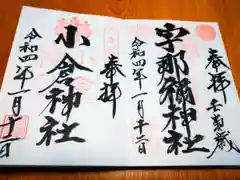 奉拝
壬寅歳
宇那禰神社
令和四年一月十二日
奉拝
小倉神社
令和四年一月十二日